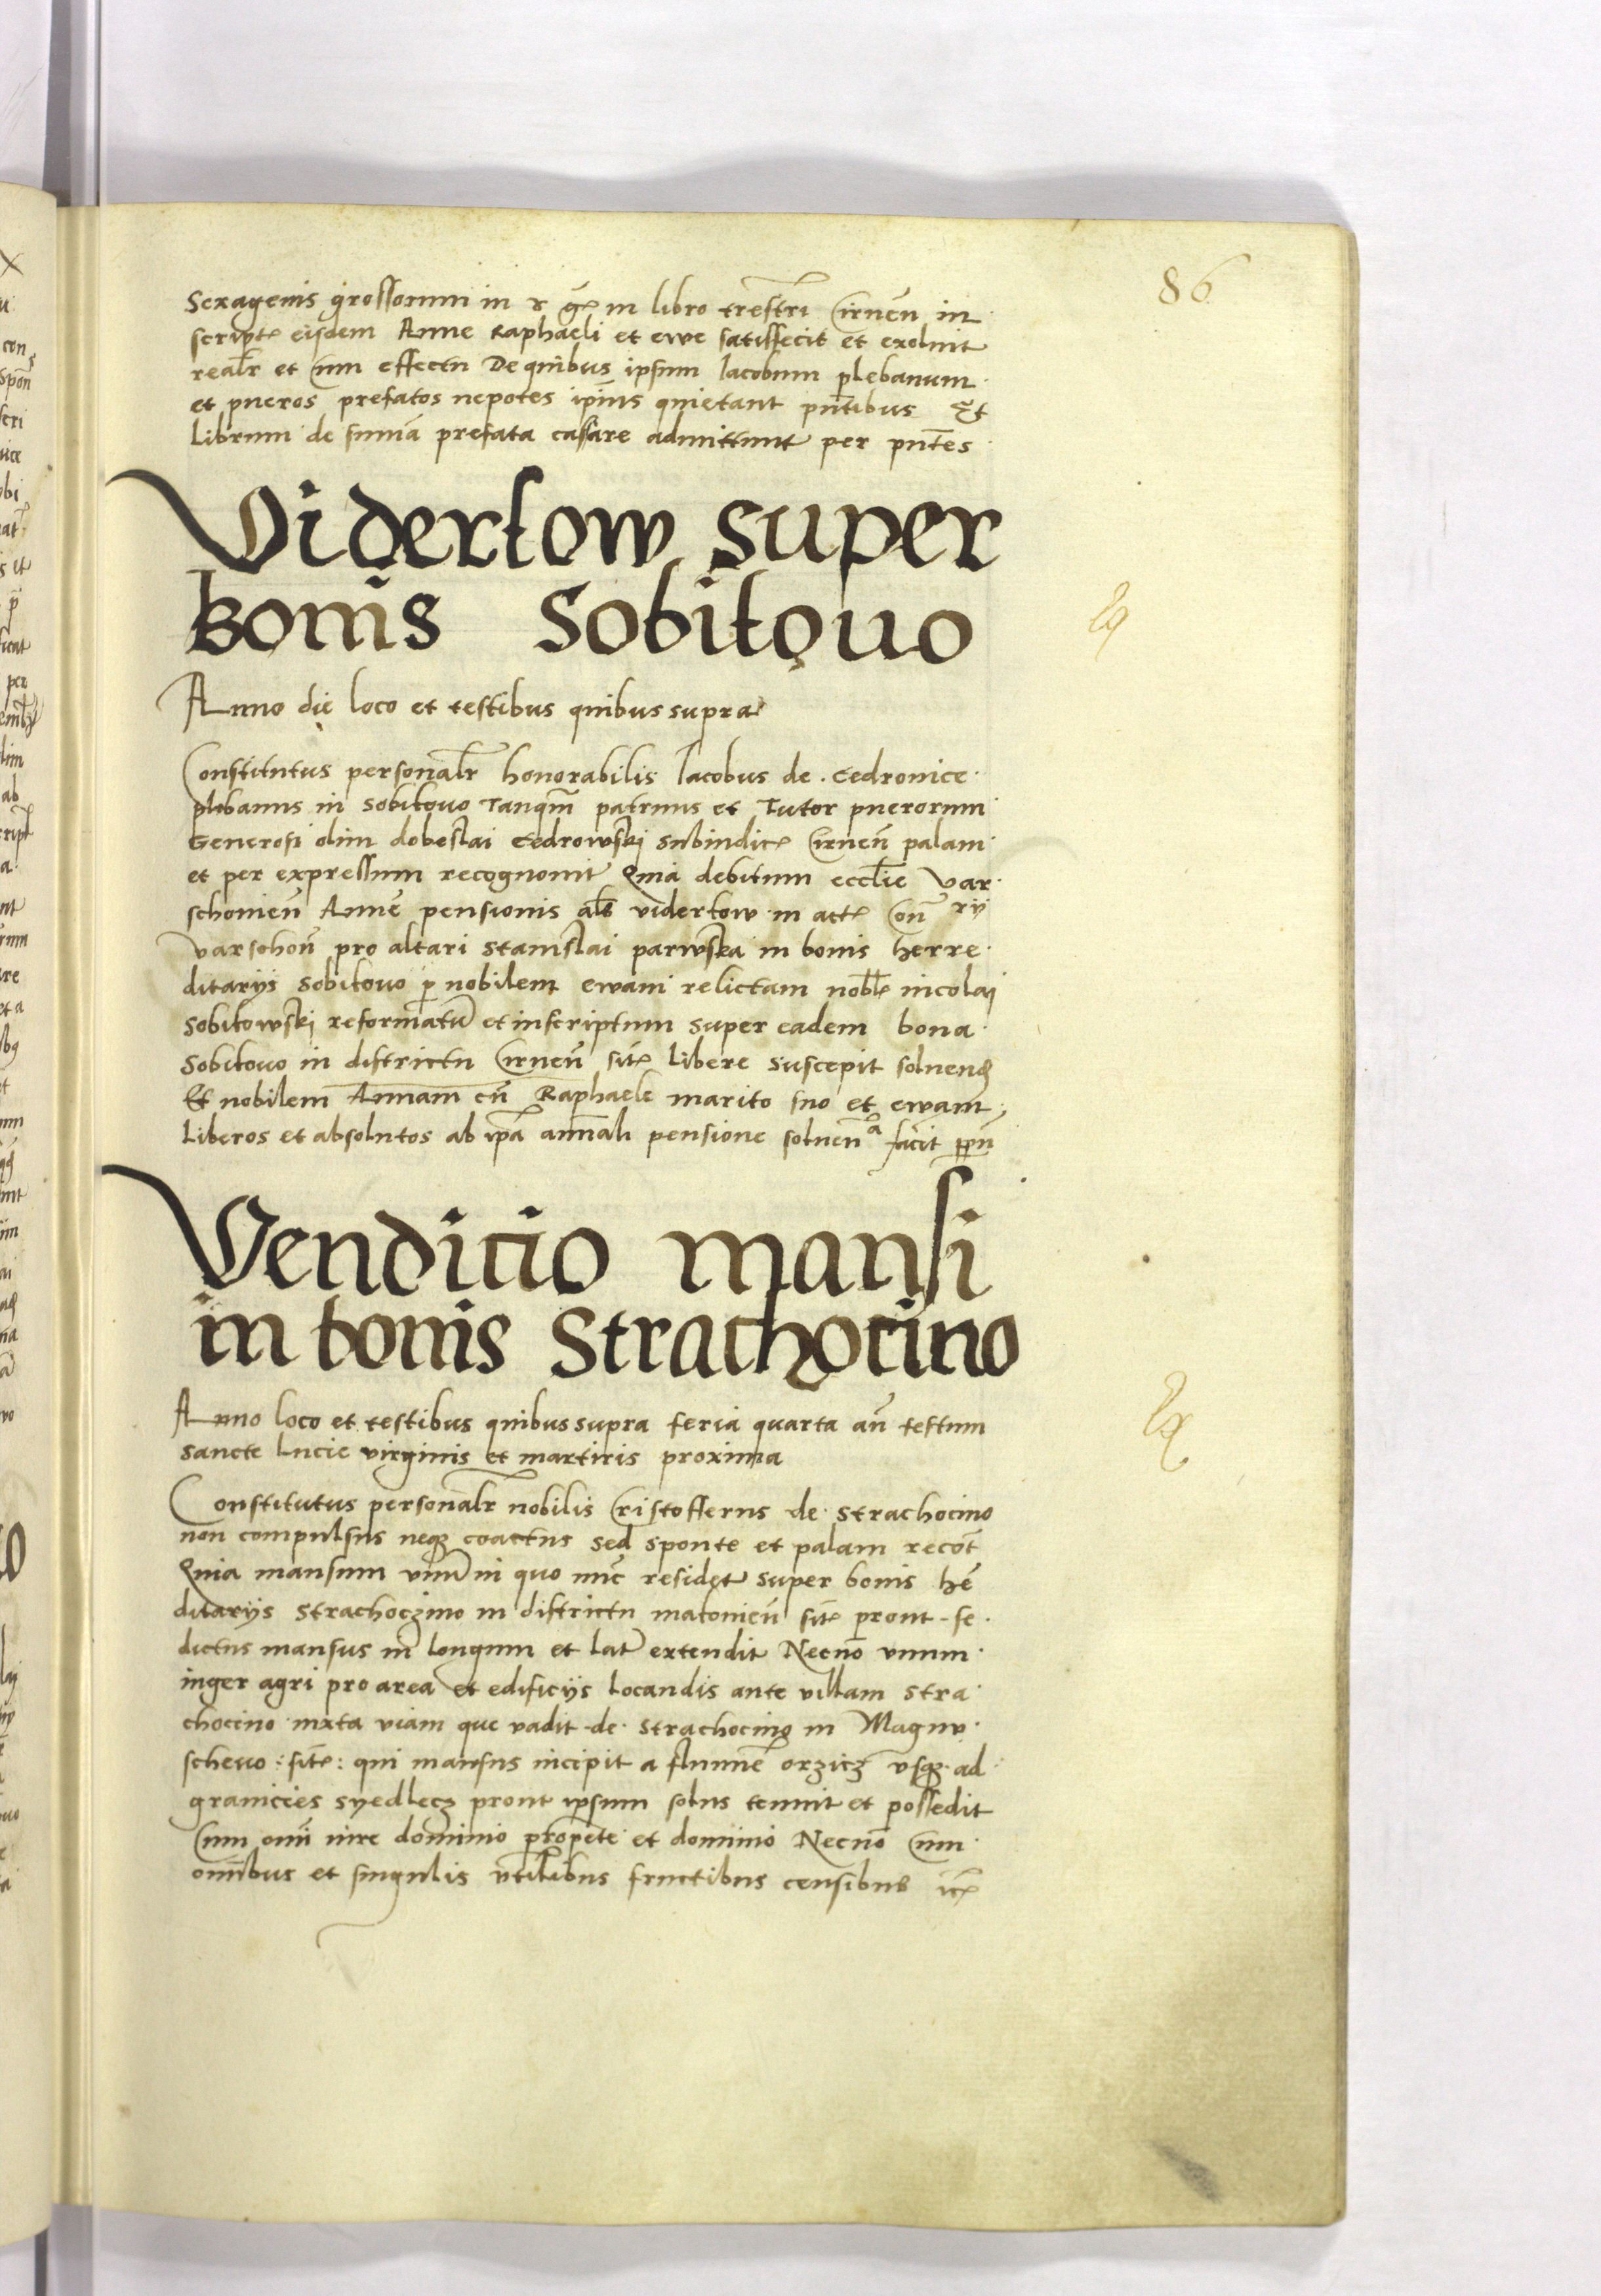 86
Sexagenis grossorum in r g̃ in libro trestri Cirneñ in
script eisdem Anne Raphaeli et ewe satisfecit et exoluit
realr̃ et cum effectu De quibus ipsum Iacobum plebanum
et pueros prefatos nepotes ipius quietant pñtibus Et
Librum de sum̃a prefata cassare admittunt per pñtes
Viderkow super
bonis Sobikouo
Anno die loco et testibus quibus supra
Constitutus personalr̃ honorabilis Iacobus de Cedronice
plebanus in Sobikouo Tanqm̃ patruus et Tutor puerorum
Generosi olim dobeslai Cedrowski Subindic Cirneñ palam
et per expressum recognouit Quia debitum eccl̃ie Var
schonieñ Annue pensionis als viderkow in act Con rij
varschoñ pro altari Stanislai parwska in bonis herre
ditarijs Sobikouo p nobilem ewam relictam nobl̃ nicolai
Sobikowski reformatũ et inscriptum super eadem bona
Sobikouo in districtu Cirneñ sit̃ Libere suscepit soluend
Et nobilem Annam cũ Raphaele marito suo et ewam
Liberos et absolutos ab ip̃a annuali pensione solueña facit
Vendicio mansi
in bonis Strachocino
Anno loco et testibus quibus supra feria quarta añ festum
Sancte Lucie virginis et martiris proxima
Constitutus personalr̃ nobilis Cristofferus de Strachocino
non compulsus neq coactus sed sponte et palam recot̃
Quia mansum vnum in quo nũc residet super bonis he
ditarijs Strachoczino in districtu makonieñ sit̃ prout se
dictus mansus in longum et lat̃ extendit Necnõ vnum
iuger agri pro area et edificijs locandis ante villam Stra
chocino iuxta viam que vadit de Strachocino in Magnu
scheuo : sit̃ : qui mansus incipit a flumine orzicz vsq ad
granicies Syedlecz prout ipsum solus tenuit et possedit
Cum omi iure dominio propete et dominio Necnõ Cum
omibus et singulis vtilibus fructibus censibus